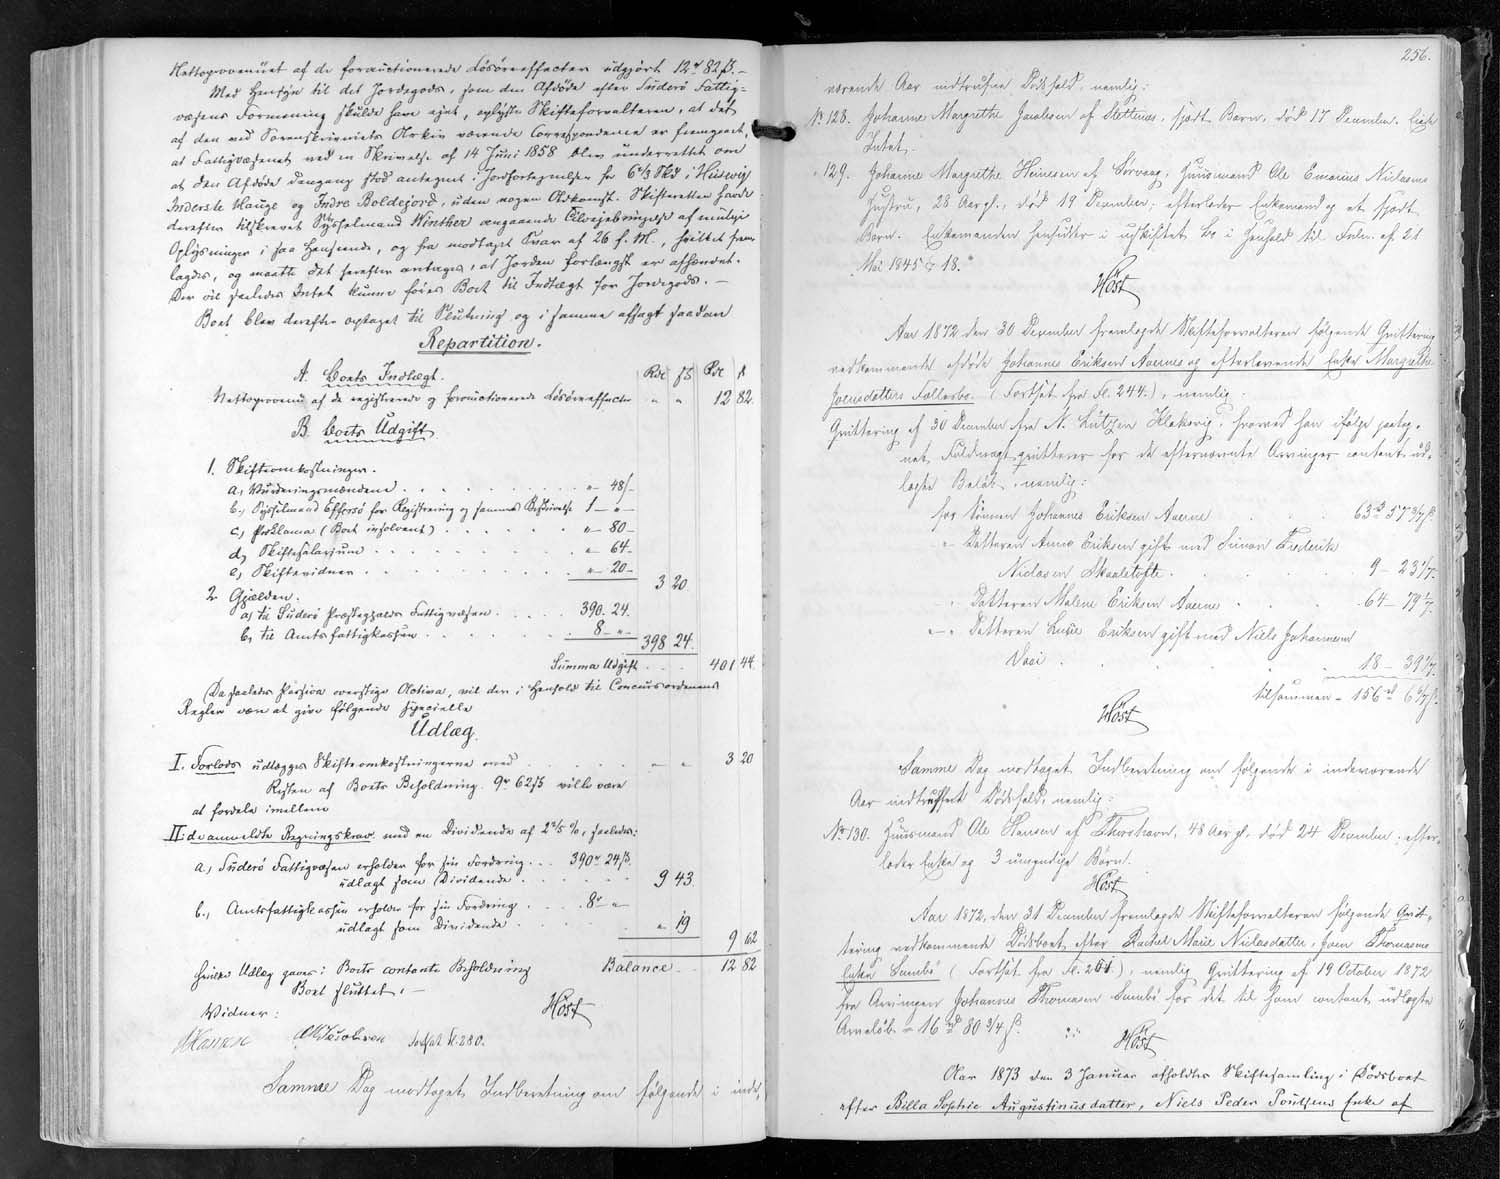 Nettoprovenüet af de forauctionerede Løsøreeffecter udgjørt 12 rd 82 ß. –
Med Hensyn til det Jordegods, som den Afdøde efter Suderø Fattig-
væsens Formening skulde have ejet, oplyste Skifteforvalteren, at det
af den ved Sorenskriveriets Arkiv værende Correspondence er fremgaaet,
at Fattigvæsenet ved en Skrivelse af 14 Juni 1858 blev underrettet om
at den Afdøde dengang stod antegnet i Jordfortegnelsen for 6 2/3 Skd i Huswig
Inderste Hauge og Indre Boldejord, uden nogen Adkomst. Skifteretten havde
derefter tilskrevet Sysselmand Winther angaaende Tilvejebringelse af mulige
Oplysninger i saa Henseende, og fra modtaget Svar af 26 f. M., hvilket frem-
lagdes, og maatte det herefter antages, at Jorden forlængst er afhændet.
Der vil saaledes Intet kunne føres Boet til Indtægt for Jordegods. –
Boet blev derefter optaget til Slutning og i samme afsagt saadan
Repartition.
A. Boets Indtægt.
Rdl ß Rdl ß
Nettoprovenü af de registrerede og forauctionerede Løsøreeffecter " " 12 82.
B. Boets Udgift
1. Skifteomkostninger.
a, Vurderingsmændene . . . " – 48 ß –
b., Sysselmand Effersø for Registrering og sammes Beskrivelse 1 – " –
c, Proklama (Boet insolvent) . . . " – 80 –
d, Skiftesalarium . . . " – 64 –
e, Skiftevidner . . . " – 20 –
3 20.
2. Gjælden.
a, til Suderø Præstegjælds Fattigvæsen . . . 390. 24.
b, til Amtsfattigkassen . . . 8 – " –
398 24.
Summa Udgift . . . 401 44.
Da saaledes Passiva overstige Activa, vil der i Henhold til Concursordenens
Regler være at give følgende specielle
Udlæg.
I. Forlods udlægges Skifteomkostningerne med . . . " " 3 20
Resten af Boets Beholdning 9 rd 62 ß ville være
at fordele imellem
II. de anmeldte Regningskrav med en Dividende af 2 2/5 %, saaledes:
a., Suderø Fattigvæsen erholder for sin Fordring . . . 390 rd 24 ß.
udlagt som Dividende . . . 9 43.
b., Amtsfattigkassen erholder for sin Fordring . . . 8 rd "
udlagt som Dividende . . . " 19
9 62
hvilke Udlæg gaves i Boets contante Beholdning Balance . . 12 82
Boet sluttet. –
Vidner: Høst
Hansen Jacobsen Fortsat fl. 280.
Samme Dag modtaget Indberetning om følgende i inde-
256.
værende Aar indtrufne Dødsfald, nemlig:
No 128. Johanne Margrethe Jacobsen af Slettenæs, spædt Barn, død 17 Decemb. Efterl.
Intet.
" 129. Johanne Margrethe Heinesen af Sørvaag, Huusmand Ole Emarius Niclasens
Hustru, 28 Aar gl., død 19 December; efterlader Enkemand og et spædt
Barn. Enkemanden hensidder i uskiftet Bo i Henhold til Frdn. af 21
Mai 1845 § 18.
Høst
Aar 1872 den 30 December fremlagde Skifteforvalteren følgende Qvittering
vedkommende afdøde Johannes Eriksen Aaernes og efterlevende Enke Margrethe
Joensdatters Fællesbo. (Fortsat fra Fl. 244.), nemlig
Qvittering af 30 December fra N. Lützen Klaksvig, hvorved han ifølge paateg-
net Fuldmagt qvitterer for de efternævnte Arvinger contant ud-
lagte Beløb, nemlig:
for Sønnen Johannes Eriksen Aaerne . . 63 rd 57 3/7 ß.
" – Datteren Anna Eriksen gift med Simon Frederik
Niclasen Skaaletofte . . . 9 – 23 1/7.
" Datteren Malene Eriksen Aaerne . . . 64 – 79 1/7.
" – " Datteren Lusie Eriksen gift med Niels Johannesen
Vaai . . . 18 – 39 1/7.
tilsammen – 156 rd 6 6/7 ß.
Høst
Samme Dag modtaget Indberetning om følgende i indeværende
Aar indtruffent Dødsfald, nemlig:
No 130. Huusmand Ole Hansen af Thorshavn, 48 Aar gl., død 24 December; efter-
lader Enke og 3 umyndige Børn.
Høst
Aar 1872, den 31 December fremlagde Skifteforvalteren følgende Qvit-
tering vedkommende Dødsboet efter Rachel Marie Niclasdatter, Joen Thomasens
Enke Sumbø (Fortsat fra Fl. 251.), nemlig Qvittering af 19 October 1872
fra Arvingen Johannes Thomasen Sumbø for det til ham contant udlagte
Arveløb – 16 rd 80 3/4 ß.
Høst
Aar 1873 den 3 Januar afholdtes Skiftesamling i Dødsboet
efter Billa Sophie Augustinusdatter, Niels Peder Poulsens Enke af